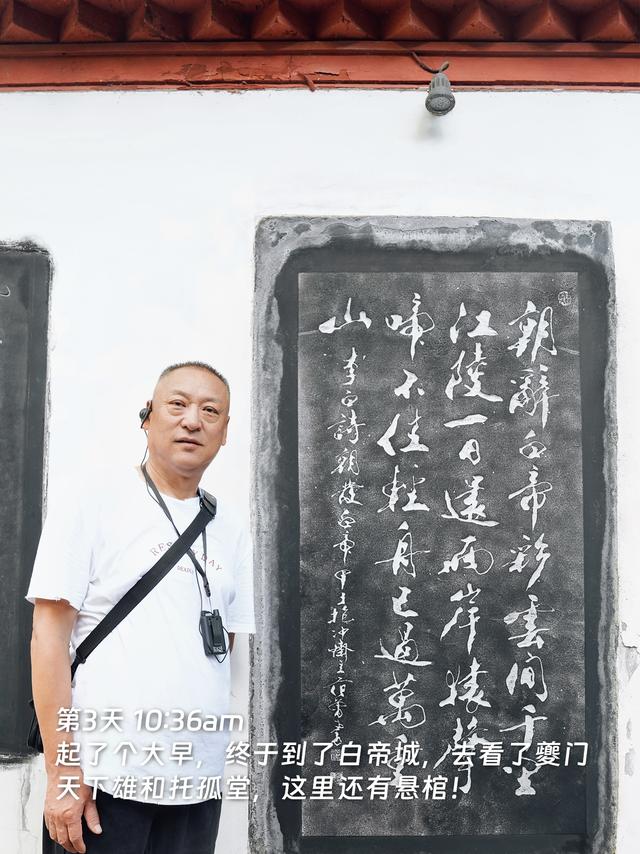 朝辭白帝彩雲間千里
江陵一日還兩岸猿聲
啼不住輕舟已過萬重
山
李白詩朝發白帝
第3天 10:36am
起了个大早，终于到了白帝城，去看了夔门
天下雄和托孤堂，这里还有悬棺！